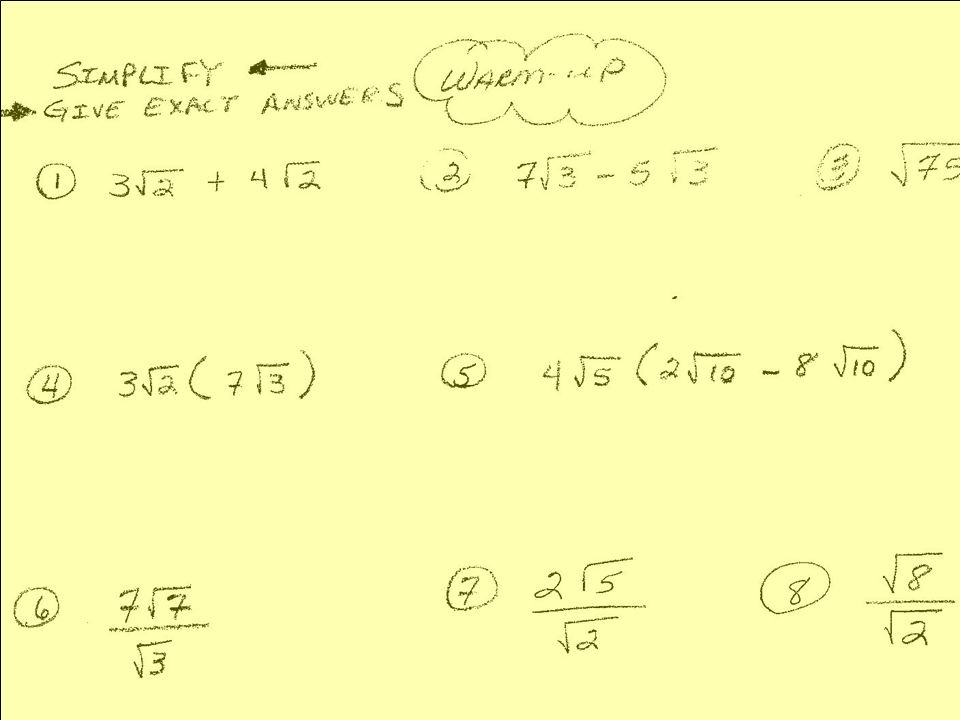 SIMPLIFY ←
WARM-UP
→ GIVE EXACT ANSWERS
① 3√2 + 4√2 ② 7√3 - 5√3 ③ √75
④ 3√2 (7√3) ⑤ 4√5 (2√10 - 8√10)
⑥ 7√7/√3 ⑦ 2√5/√2 ⑧ √8/√2